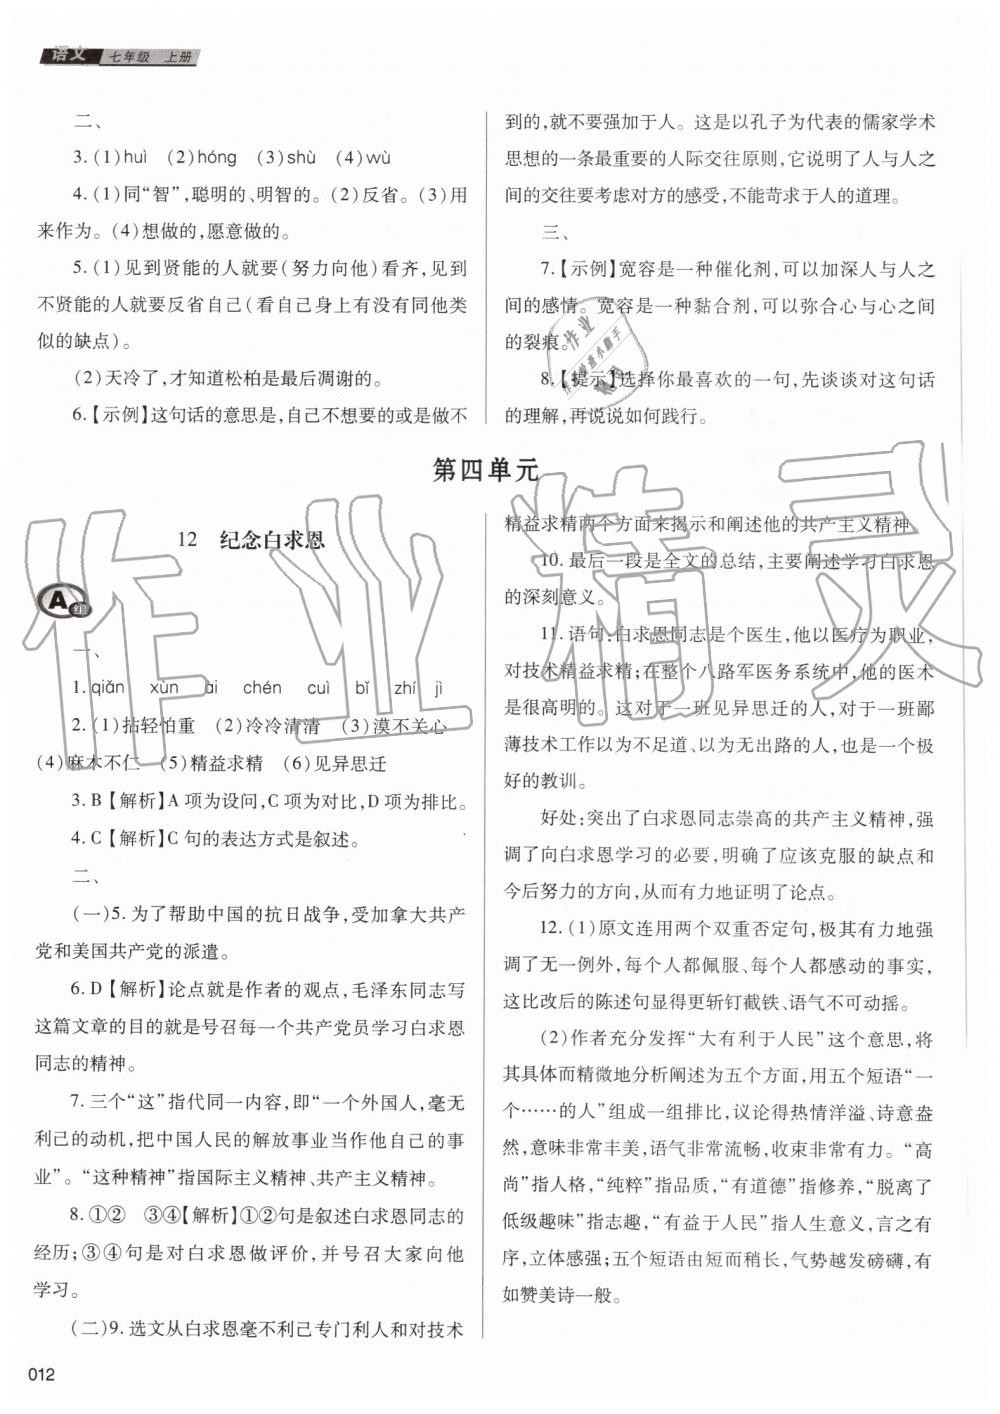 语文 七年级 上册
二、
3.(1)huì (2)hóng (3)shù (4)wù
4.(1)同“智”,聪明的、明智的。(2)反省。(3)用
来作为。(4)想做的,愿意做的。
5.(1)见到贤能的人就要(努力向他)看齐,见到
不贤能的人就要反省自己(看自己身上有没有同他类
似的缺点)。
(2)天冷了,才知道松柏是最后凋谢的。
6.【示例】这句话的意思是,自己不想要的或是做不
到的,就不要强加于人。这是以孔子为代表的儒家学术
思想的一条最重要的人际交往原则,它说明了人与人之
间的交往要考虑对方的感受,不能苛求于人的道理。
三、
7.【示例】宽容是一种催化剂,可以加深人与人之
间的感情。宽容是一种黏合剂,可以弥合心与心之间
的裂痕。
8.【提示】选择你最喜欢的一句,先谈谈对这句话
的理解,再说说如何践行。
第四单元
12 纪念白求恩
A组
一、
1.qiǎn xùn ài chén cuì bǐ zhí jì
2.(1)拈轻怕重 (2)冷冷清清 (3)漠不关心
(4)麻木不仁 (5)精益求精 (6)见异思迁
3.B【解析】A项为设问,C项为对比,D项为排比。
4.C【解析】C句的表达方式是叙述。
二、
(一)5.为了帮助中国的抗日战争,受加拿大共产
党和美国共产党的派遣。
6.D【解析】论点就是作者的观点,毛泽东同志写
这篇文章的目的就是号召每一个共产党员学习白求恩
同志的精神。
7.三个“这”指代同一内容,即“一个外国人,毫无
利己的动机,把中国人民的解放事业当作他自己的事
业”。“这种精神”指国际主义精神、共产主义精神。
8.①② ③④【解析】①②句是叙述白求恩同志的
经历;③④句是对白求恩做评价,并号召大家向他
学习。
(二)9.选文从白求恩毫不利己专门利人和对技术
精益求精两个方面来揭示和阐述他的共产主义精神。
10.最后一段是全文的总结,主要阐述学习白求恩
的深刻意义。
11.语句:白求恩同志是个医生,他以医疗为职业,
对技术精益求精;在整个八路军医务系统中,他的医术
是很高明的。这对于一班见异思迁的人,对于一班鄙
薄技术工作以为不足道、以为无出路的人,也是一个极
好的教训。
好处:突出了白求恩同志崇高的共产主义精神,强
调了向白求恩学习的必要,明确了应该克服的缺点和
今后努力的方向,从而有力地证明了论点。
12.(1)原文连用两个双重否定句,极其有力地强
调了无一例外,每个人都佩服、每个人都感动的事实,
这比改后的陈述句显得更斩钉截铁、语气不可动摇。
(2)作者充分发挥“大有利于人民”这个意思,将
其具体而精微地分析阐述为五个方面,用五个短语“一
个……的人”组成一组排比,议论得热情洋溢、诗意盎
然,意味非常丰美,语气非常流畅,收束非常有力。“高
尚”指人格,“纯粹”指品质,“有道德”指修养,“脱离了
低级趣味”指志趣,“有益于人民”指人生意义,言之有
序,立体感强;五个短语由短而稍长,气势越发磅礴,有
如赞美诗一般。
012
作业精灵